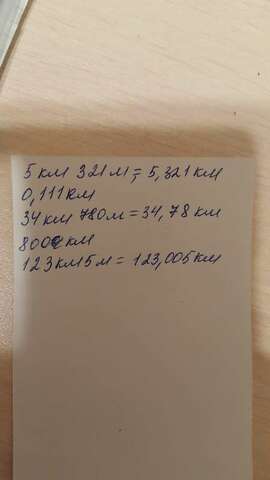 5 км 321 м = 5,321 км
0,111 км
34 км 780 м = 34,78 км
800 км
123 км 5 м = 123,005 км